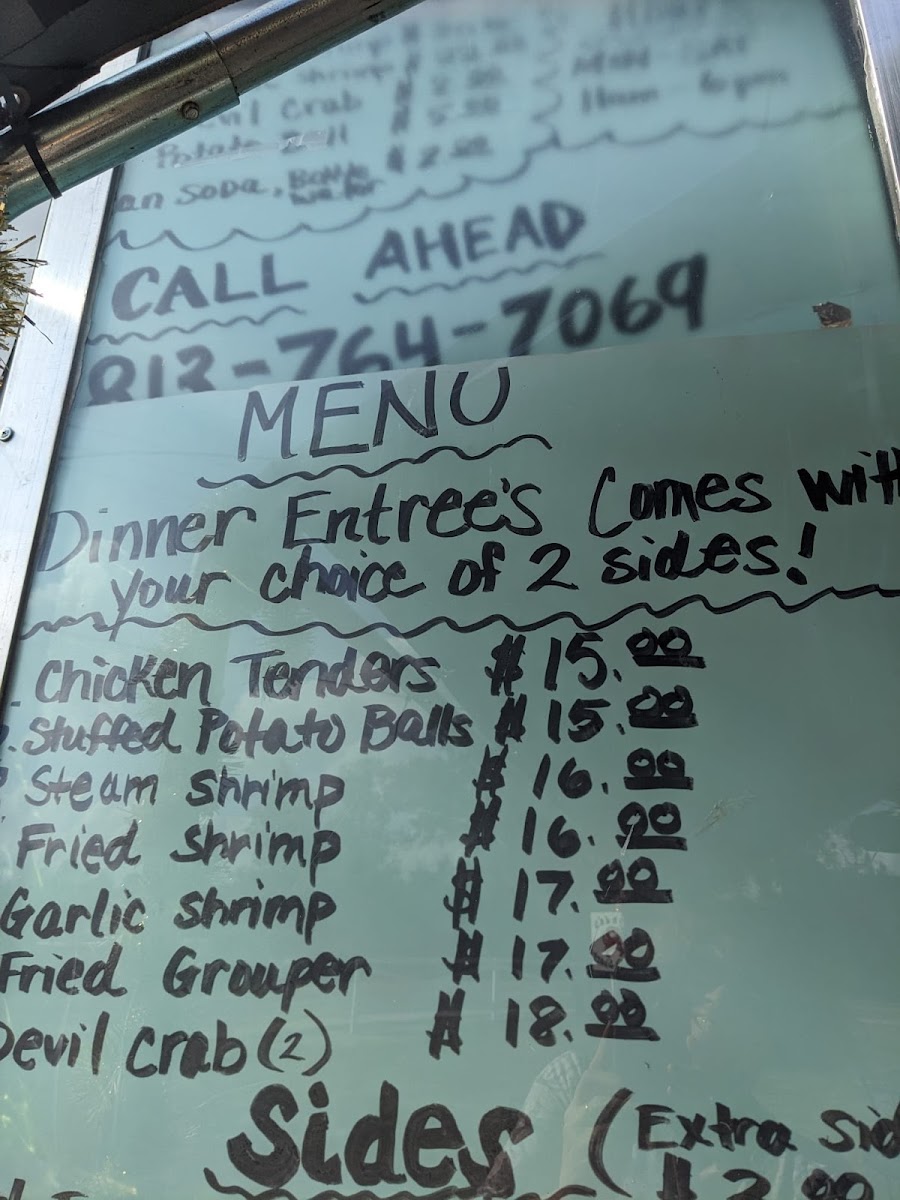 shrimp
Devil Crab $ 5.00
Potato Ball
11am - 6pm
an soda, Bottle water $ 2.00
CALL AHEAD
813-764-7069
MENU
Dinner Entree's Comes with
your choice of 2 sides!
Chicken Tenders $ 15.00
Stuffed Potato Balls $ 15.00
Steam Shrimp $ 16.00
Fried Shrimp $ 16.00
Garlic Shrimp $ 17.00
Fried Grouper $ 17.00
Devil Crab (2) $ 18.00
Sides (Extra Sid